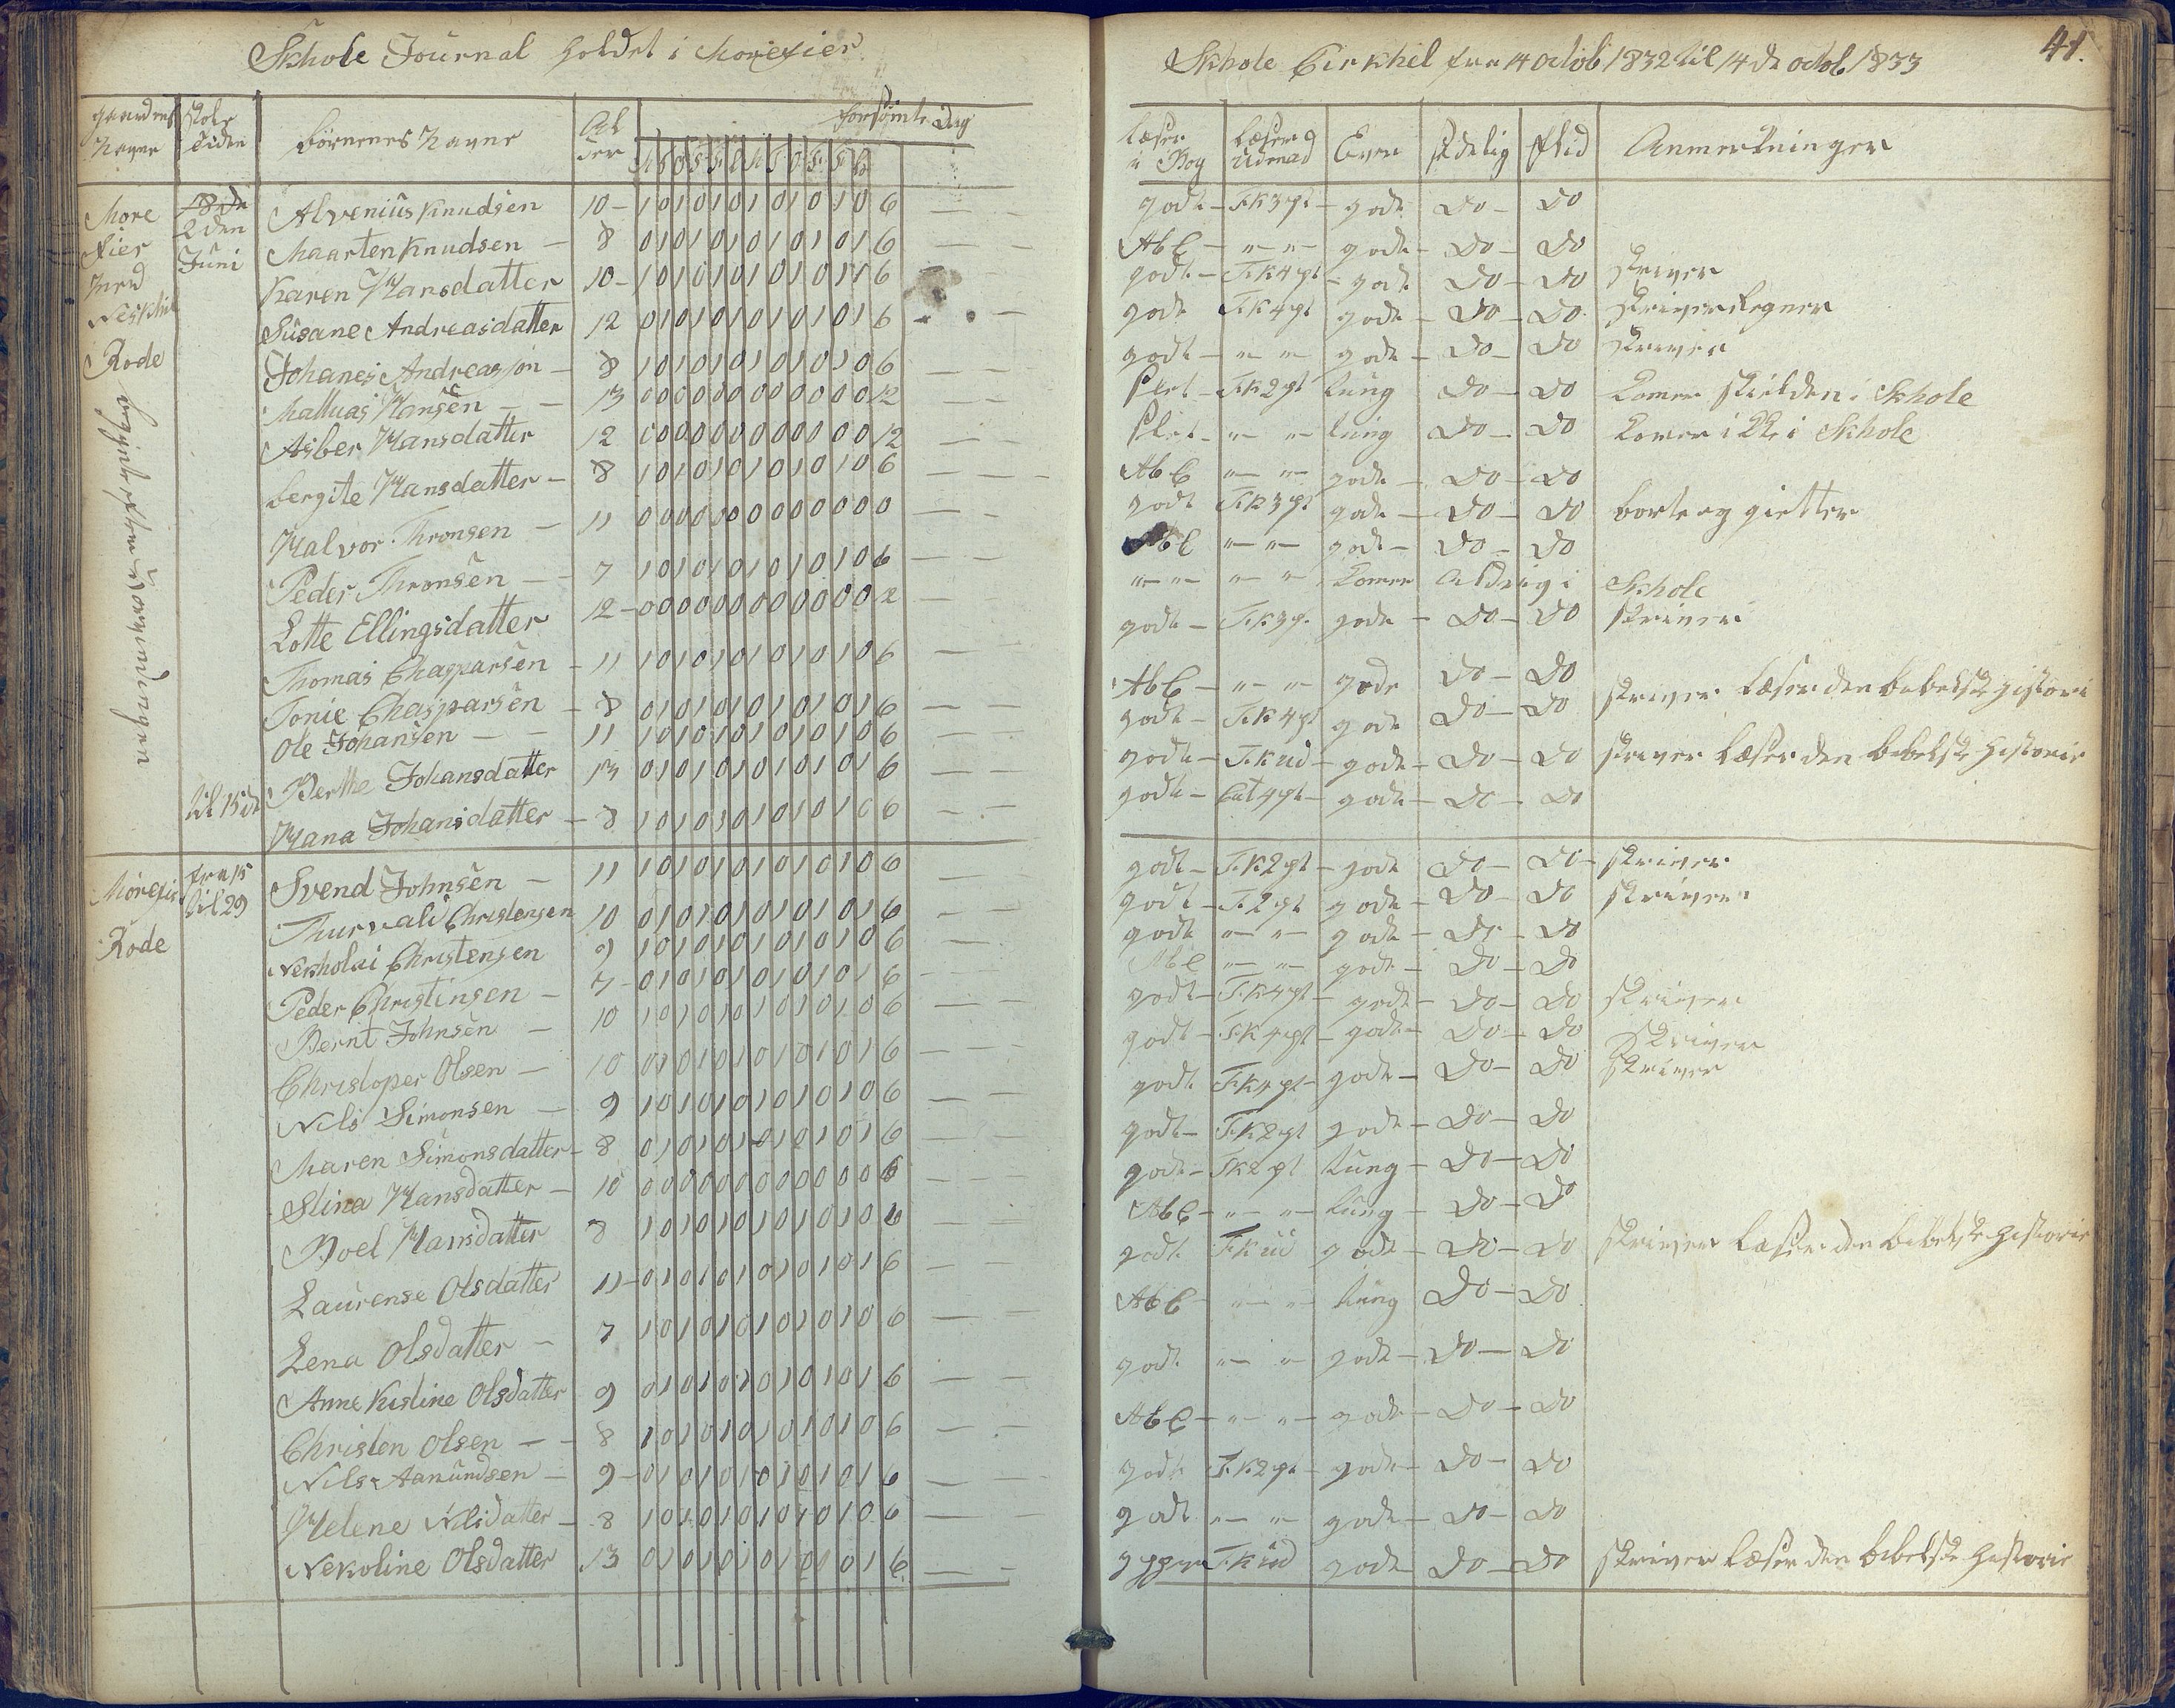 Skhole Journal holdet i Morefier
Skhole Cirkhel fra 14 octob 1832 til 14 de octob 1833
41.
gaardens Navne
skole tiden
börnenes Navne
Al der
forsömte Dag
Læser i Bog
Læser Udenad
Evner
sedelig
flid
Anmerkninger
More fier
2den Juni
Rode
Alvenius Knudsen 10 1 0 1 0 1 0 1 0 1 0 1 0 6 godt T.K 3 pt gode Do Do
Maarten Knudsen 8 0 1 0 1 0 1 0 1 0 1 0 1 6 AbC " " gode Do Do
Karen Hansdatter 10 1 0 1 0 1 0 1 0 1 0 1 6 godt T.K 4 pt gode Do Do skriver
Susane Andreasdatter 12 0 1 0 1 0 1 0 1 0 1 0 1 6 godt T.K 4 pt gode Do Do skriver Regner
Johanes Andreasson 8 1 0 1 0 1 0 1 0 1 0 1 0 6 godt " " gode Do Do skriver
Mathias Hansen 13 0 0 0 0 0 0 0 0 0 0 0 0 12 slet T.K 2 pt tung Do Do Komer skielden i Skhole
Asber Hansdatter 12 0 0 0 0 0 0 0 0 0 0 0 0 12 slet " " tung Do Do Komer ikke i Skhole
Bergite Hansdatter 8 1 0 1 0 1 0 1 0 1 0 1 0 6 AbC " " gode Do Do
Halvor Thronsen 11 0 0 0 0 0 0 0 0 0 0 0 0 godt T.K 3 pt gode Do Do borte og gietter
Peder Thronsen 7 1 0 1 0 1 0 1 0 1 0 1 0 6 AbC " " gode Do Do
Lotte Ellingsdatter 12 0 0 0 0 0 0 0 0 0 0 0 0 12 " " " " Komer Aldrig i Skhole
Thomas Chasparsen 11 1 0 1 0 1 0 1 0 1 0 1 0 6 godt T.K 3 pt gode Do Do skriver
Tonie Chasparsen 8 0 1 0 1 0 1 0 1 0 1 0 1 6 AbC " " gode Do Do
Ole Johansen 11 1 0 1 0 1 0 1 0 1 0 1 0 6 godt T.K 4 pt gode Do Do skriver læser den bibelske histori
Berthe Johansdatter 13 0 1 0 1 0 1 0 1 0 1 0 1 6 godt T.K ud gode Do Do skriver læser den bibelske historie
til 15 de Hana Johansdatter 8 1 0 1 0 1 0 1 0 1 0 1 0 6 godt Cat 4 pt gode Do Do
Morefier fra 15 til 29
Rode
Svend Johnsen 11 1 0 1 0 1 0 1 0 1 0 1 0 6 godt T.K 2 pt gode Do Do skriver
Thurvali Christensen 10 0 1 0 1 0 1 0 1 0 1 0 1 6 godt T. 2 pt gode Do Do skriver
Nekholai Christensen 9 1 0 1 0 1 0 1 0 1 0 1 0 6 godt " " gode Do Do
Peder Christinsen 7 0 1 0 1 0 1 0 1 0 1 0 1 6 AbC " " gode Do Do
Bernt Johnsen 10 1 0 1 0 1 0 1 0 1 0 1 0 6 godt T.K 4 pt gode Do Do skriver
Christoper Olsen 10 0 1 0 1 0 1 0 1 0 1 0 1 6 godt T.K 4 pt gode Do Do skriver
Nils Simonsen 9 1 0 1 0 1 0 1 0 1 0 1 0 6 godt T.K 4 pt gode Do Do skriver
Maren Simonsdatter 8 0 1 0 1 0 1 0 1 0 1 0 1 6 godt T.K 2 pt gode Do Do
Stina Hansdatter 10 0 0 0 0 0 0 0 0 0 0 0 6 godt T.K 2 pt tung Do Do
Boel Hansdatter 8 1 0 1 0 1 0 1 0 1 0 1 0 6 AbC " " tung Do Do
Laurense Olsdatter 11 0 1 0 1 0 1 0 1 0 1 0 1 6 godt T.K ud gode Do Do skriver læser den bibelske historie
Lena Olsdatter 7 1 0 1 0 1 0 1 0 1 0 1 0 6 AbC " " tung Do Do
Anne Kistine Olsdatter 9 0 1 0 1 0 1 0 1 0 1 0 1 6 godt " " gode Do Do
Christen Olsen 8 1 0 1 0 1 0 1 0 1 0 1 0 6 AbC " " gode Do Do
Nils Aamundsen 9 0 1 0 1 0 1 0 1 0 1 0 1 6 godt T.K 2 pt gode Do Do
Helene Nilsdatter 8 1 0 1 0 1 0 1 0 1 0 1 0 6 godt " " gode Do Do
Nekoline Olsdatter 13 0 1 0 1 0 1 0 1 0 1 0 1 6 T.K ud gode Do Do skriver læser den bibelske historie